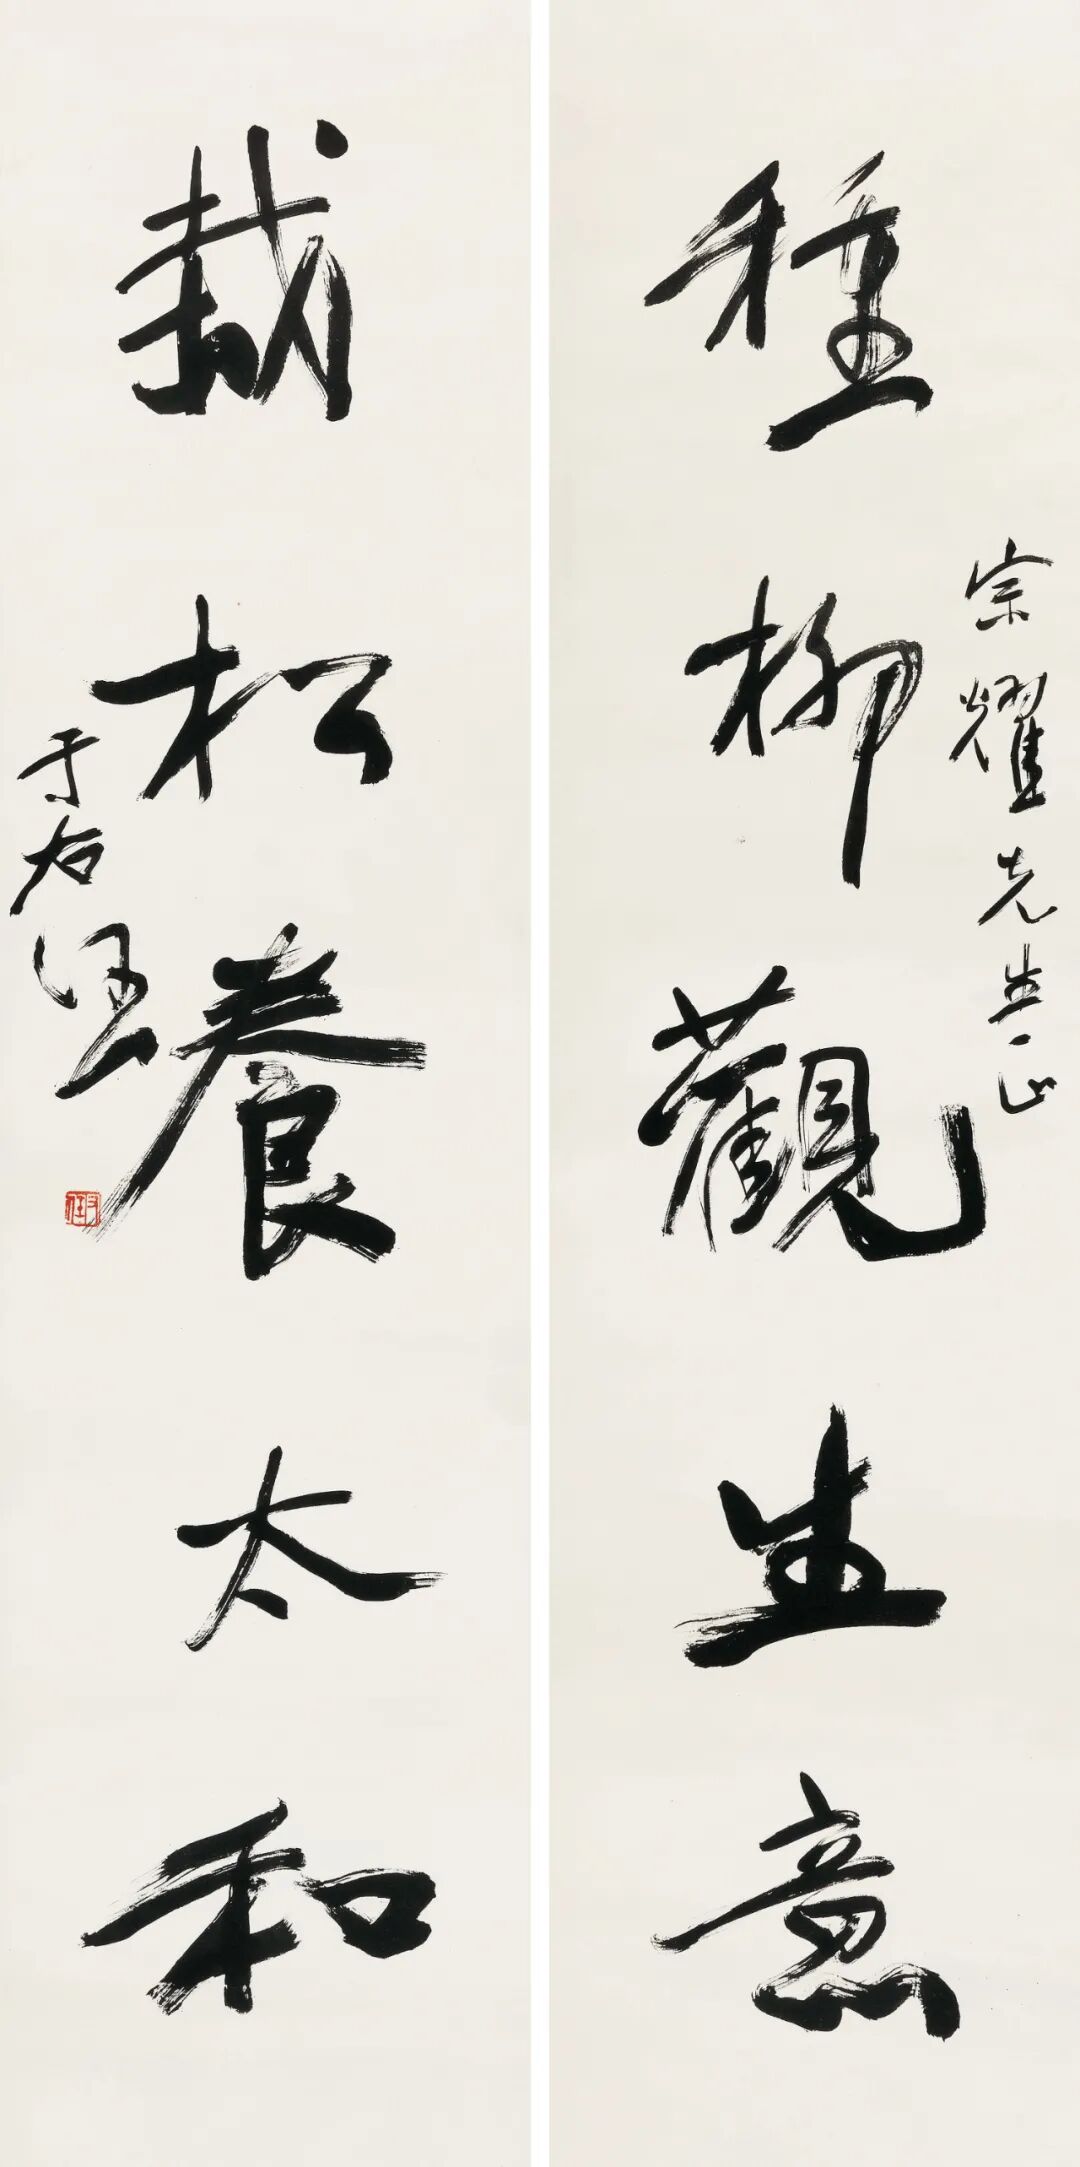 種柳觀生意
宗耀先生正
栽松養太和
于右任
右任